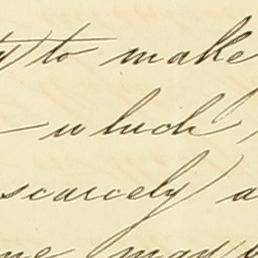 to make
which
scarcely a
may